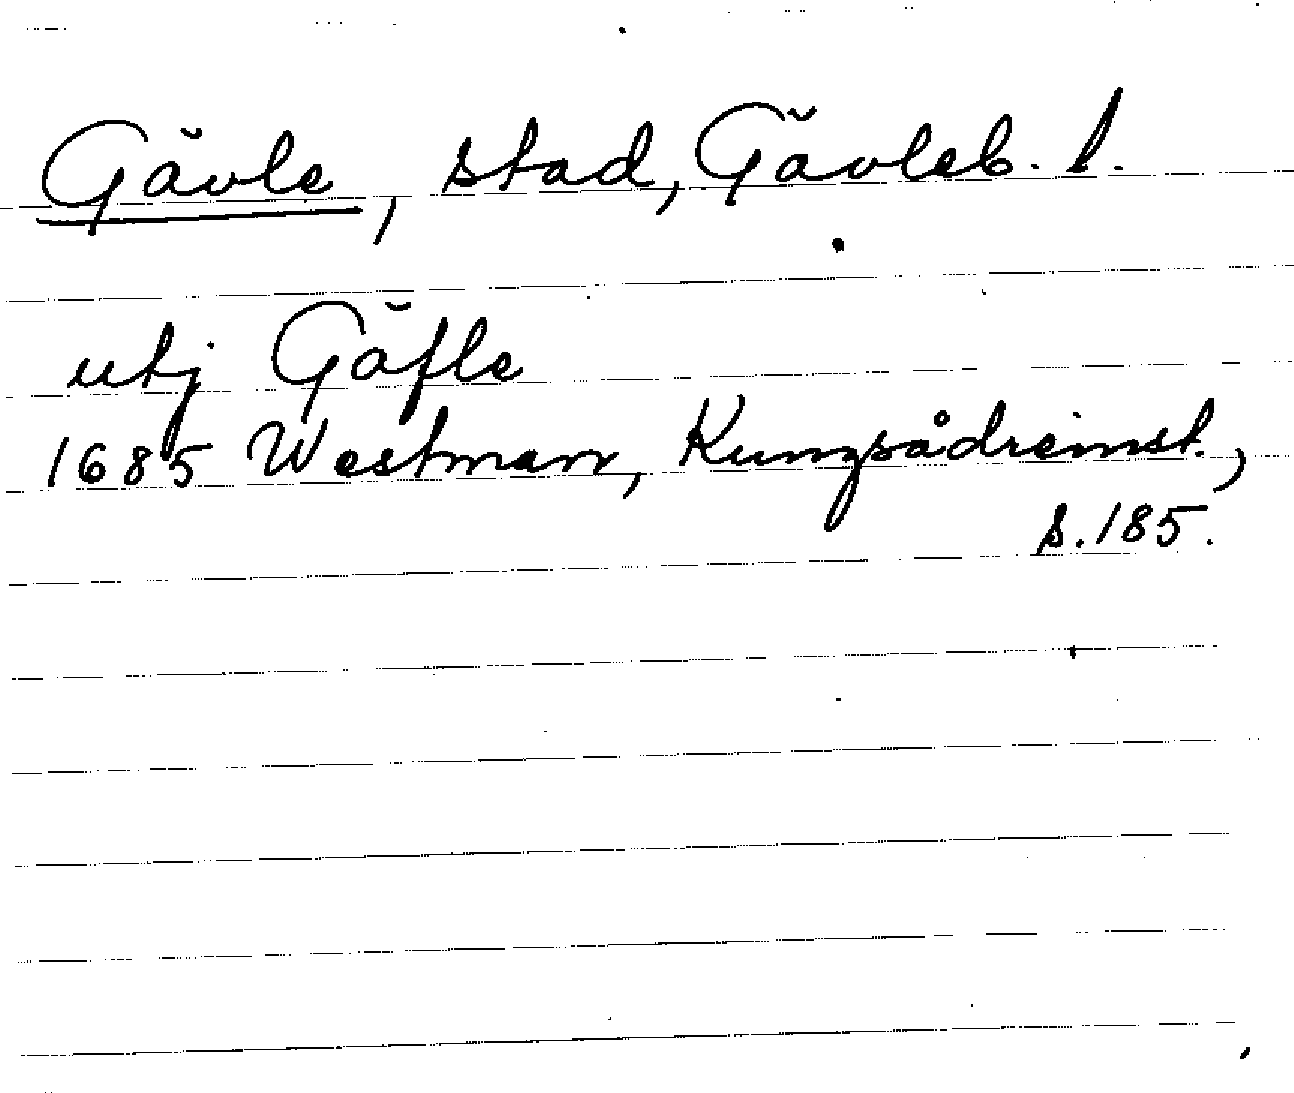 Gävle, stad, Gävleb. l.
utj Gäfle
1685 Westman, Kungsådreinst.,
s. 185.